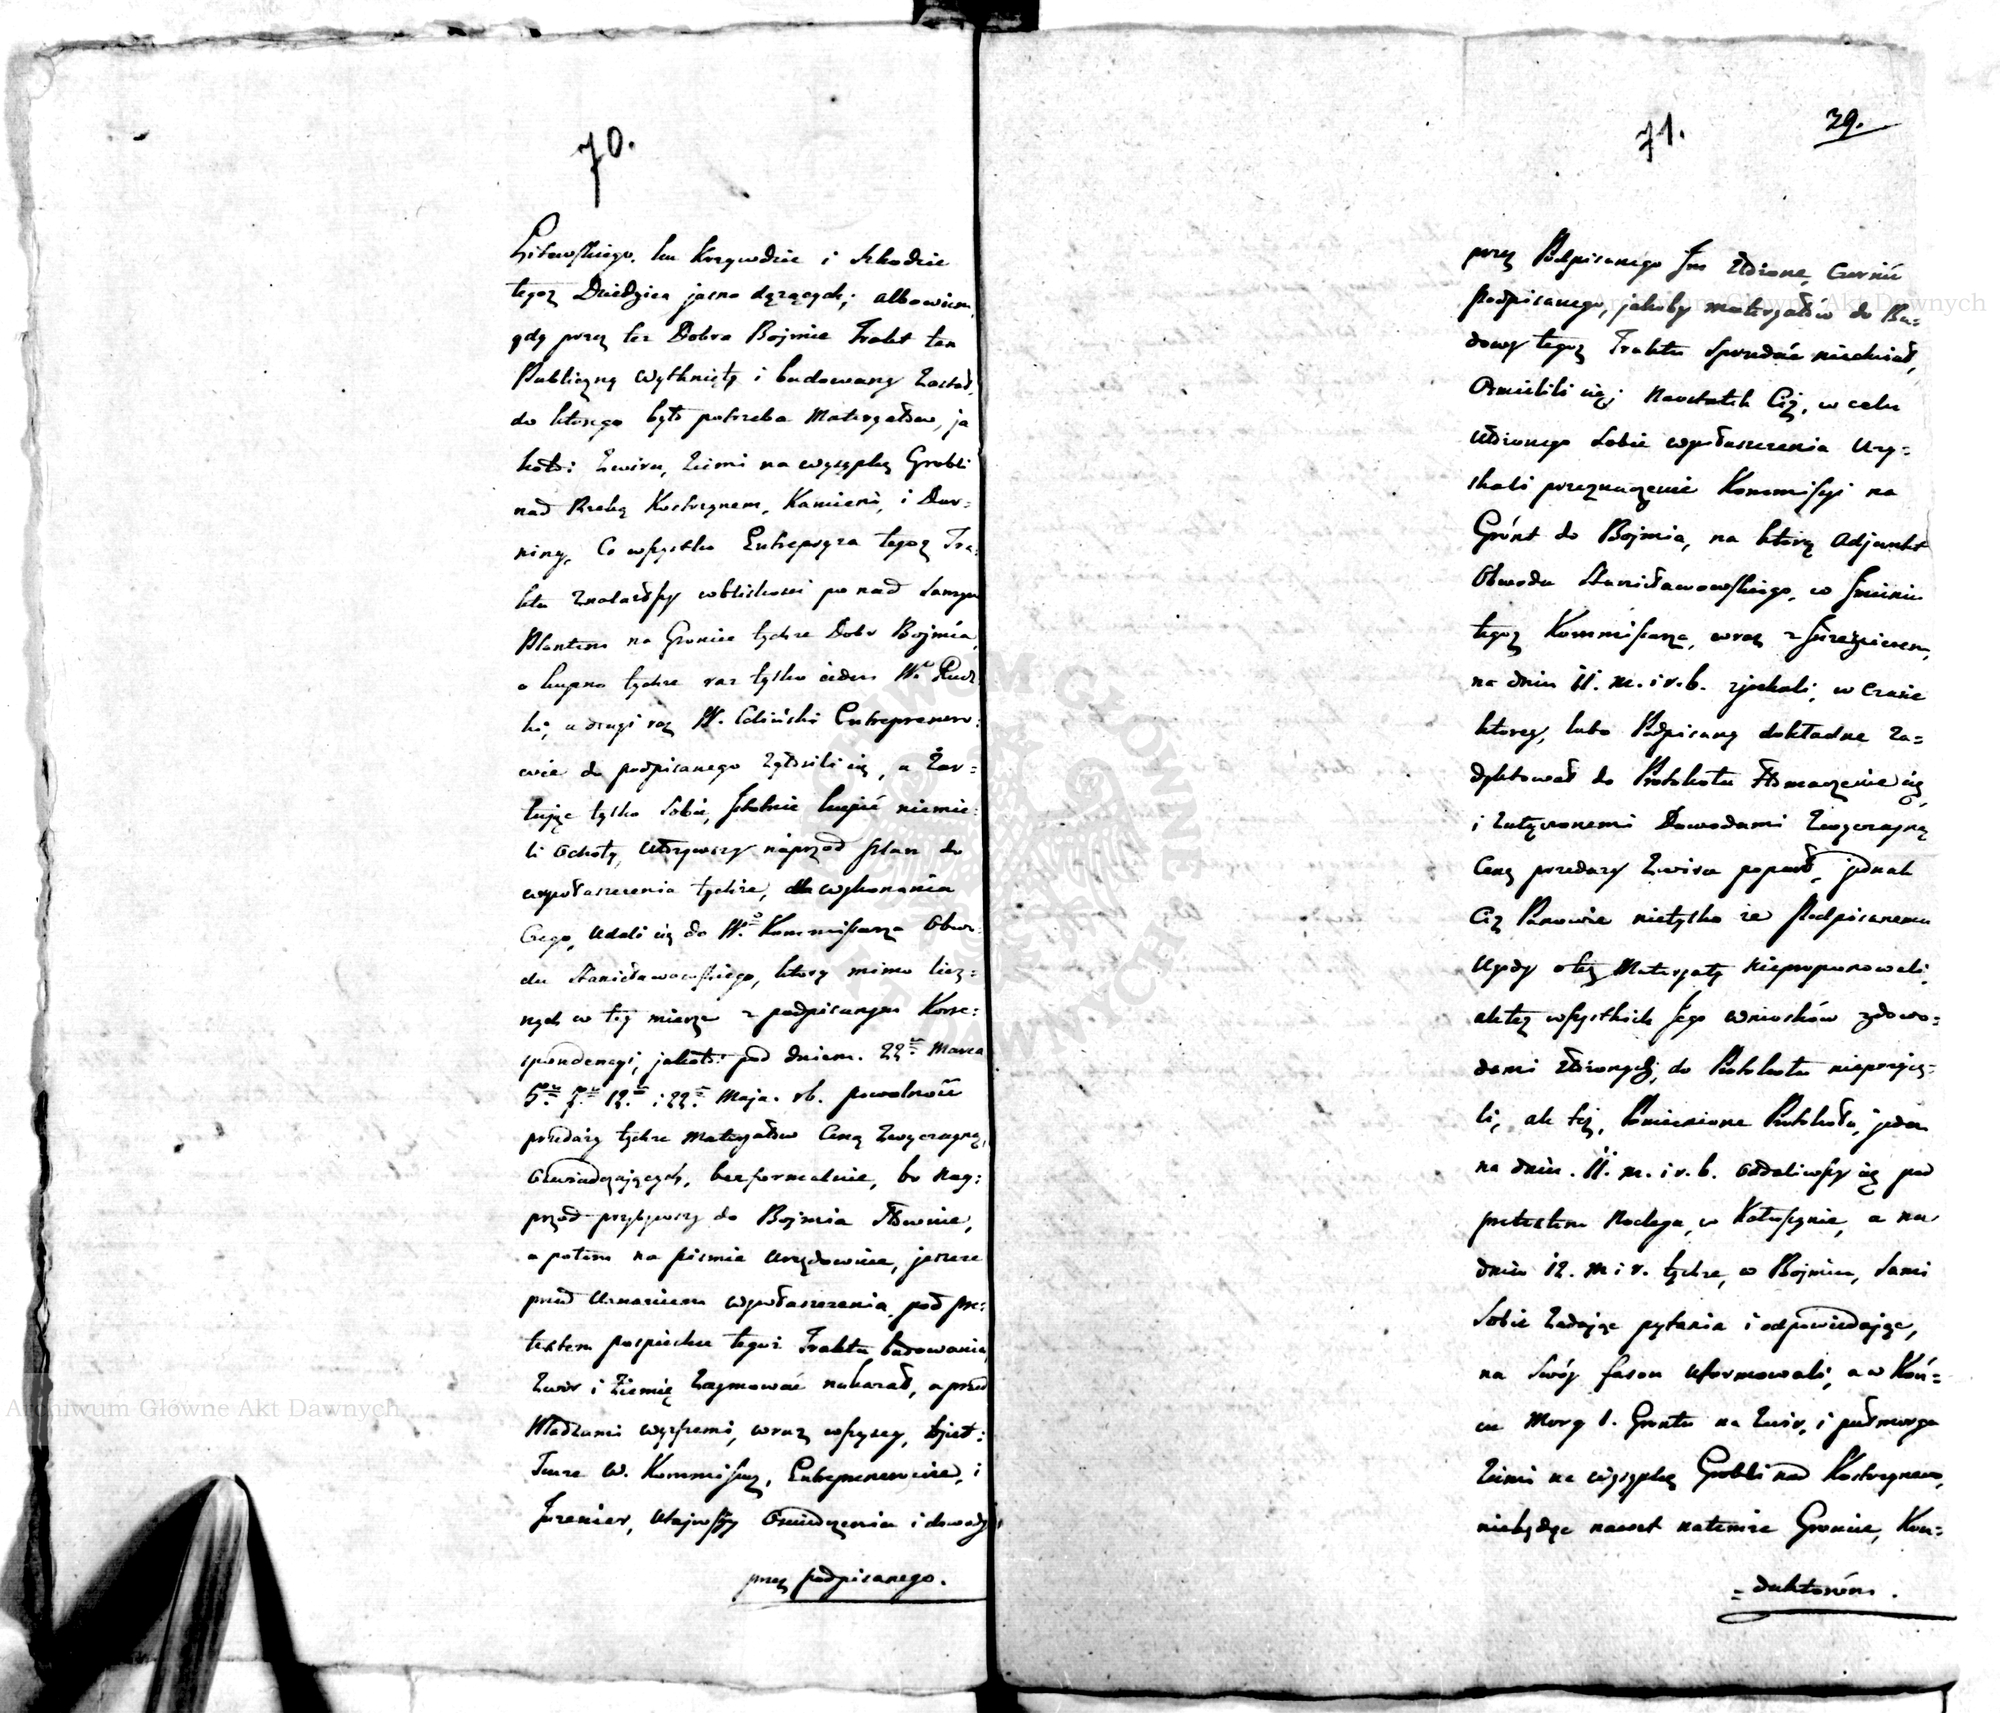 70.
Litewskiego, ku Krzywdzie i szkodzie
tegoż Dziedzica jasno dążących; albowiem
gdy przez też Dobra Bojmie Trakt ten
Publiczny wytknięty i budowany został,
do którego było potrzeba Materyałów, ja
koto: Żwiru, Ziemi na wysypkę Grobli
nad Rzeką Kostrzynem, Kamieni, i Dar-
niny, Co wszystko Entrepryza tegoż Tra-
ktu znalazłszy wbliskości po nad samym
Plantem na Gruncie tychże Dobr Bojmia,
o kupno tychże raz tylko jeden
ki, a drugi raz W. Entreprenero-
wie do podpisanego zgłosili się, a żar-
tując tylko sobie, istotnie kupić niemie-
li ochoty, ułożywszy naprzód plan do
wywłaszczenia tychże, dla wykonania
Czego, udali się do Wo Kommissarza Obwo-
du Stanisławowskiego, który mimo licz-
nych w tej mierze z podpisanym Korre-
spondencyi, jakoto: pod dniem 22 Marca
5. 7. 12. i 22. Maja. rb. powolność
przedaży tychże Materyałów Ceną zwyczajną,
Oświadczających, bezformalnie, bo naj-
przód przybywszy do Bojmia słownie,
a potem na pismie urzędownie, jeszcze
przed uznaniem wywłaszczenia pod pre-
textem pospiechu tegoż Traktu budowania,
Żwir i Ziemię zajmować nakazał, a przed
Władzami wyższemi, wraz wszyscy, to jest:
Tenże W. Kommissarz, Entreprenerowie, i
Inżenier, utaiwszy Oświadczenia i dowody
przez podpisanego.
71. 39.
przez Podpisanego Im złożone,
podpisanego, jakoby materyałów do Bu-
dowy tegoż Traktu sprzedać niechciał,
Ośmielili się; Naostatek Ciż, w celu
ułożonego sobie wywłaszczenia uzy-
skali przeznaczenie Kommissyi na
Grónt do Bojmia, na którą Adjunkt
Obwodu Stanisławowskiego, w Imieniu
tegoż Kommissarza, wraz z Inżenierem,
na dniu 11. m. i r. b. zjechali, w czasie
której, lubo Podpisany dokładne za-
dyktował do Protokołu tłomaczenie się,
i załączonemi Dowodami zwyczajną
Cenę przedaży Żwiru poparł, jednak
Ciż Panowie nietylko że Podpisanemu
ugody o też Materyały nieproponowali,
ale też wszystkich Jego wniosków z dowo-
dami złożonych, do Protokołu nieprzyję-
li, ale też, Pomienione Protokoła, jeden
na dniu 11. m. i r. b. oddaliwszy się pod
pretextem noclegu, w Kałuszynie, a na
dniu 12. m i r. tychże, w Bojmiu, sami
sobie zadając pytania i odpowiedając,
na swój fason uformowali, a w Koń-
cu Morg 1. Gruntu na Żwir, i pułmorga
Ziemi na wysypkę Grobli nad Kostrzynem,
niebędąc nawet natemże Gruncie, Kon-
-duktorówi.
Archiwum Główne Akt Dawnych
Archiwum Główne Akt Dawnych
ARCHIWUM GŁÓWNE AKT DAWNYCH